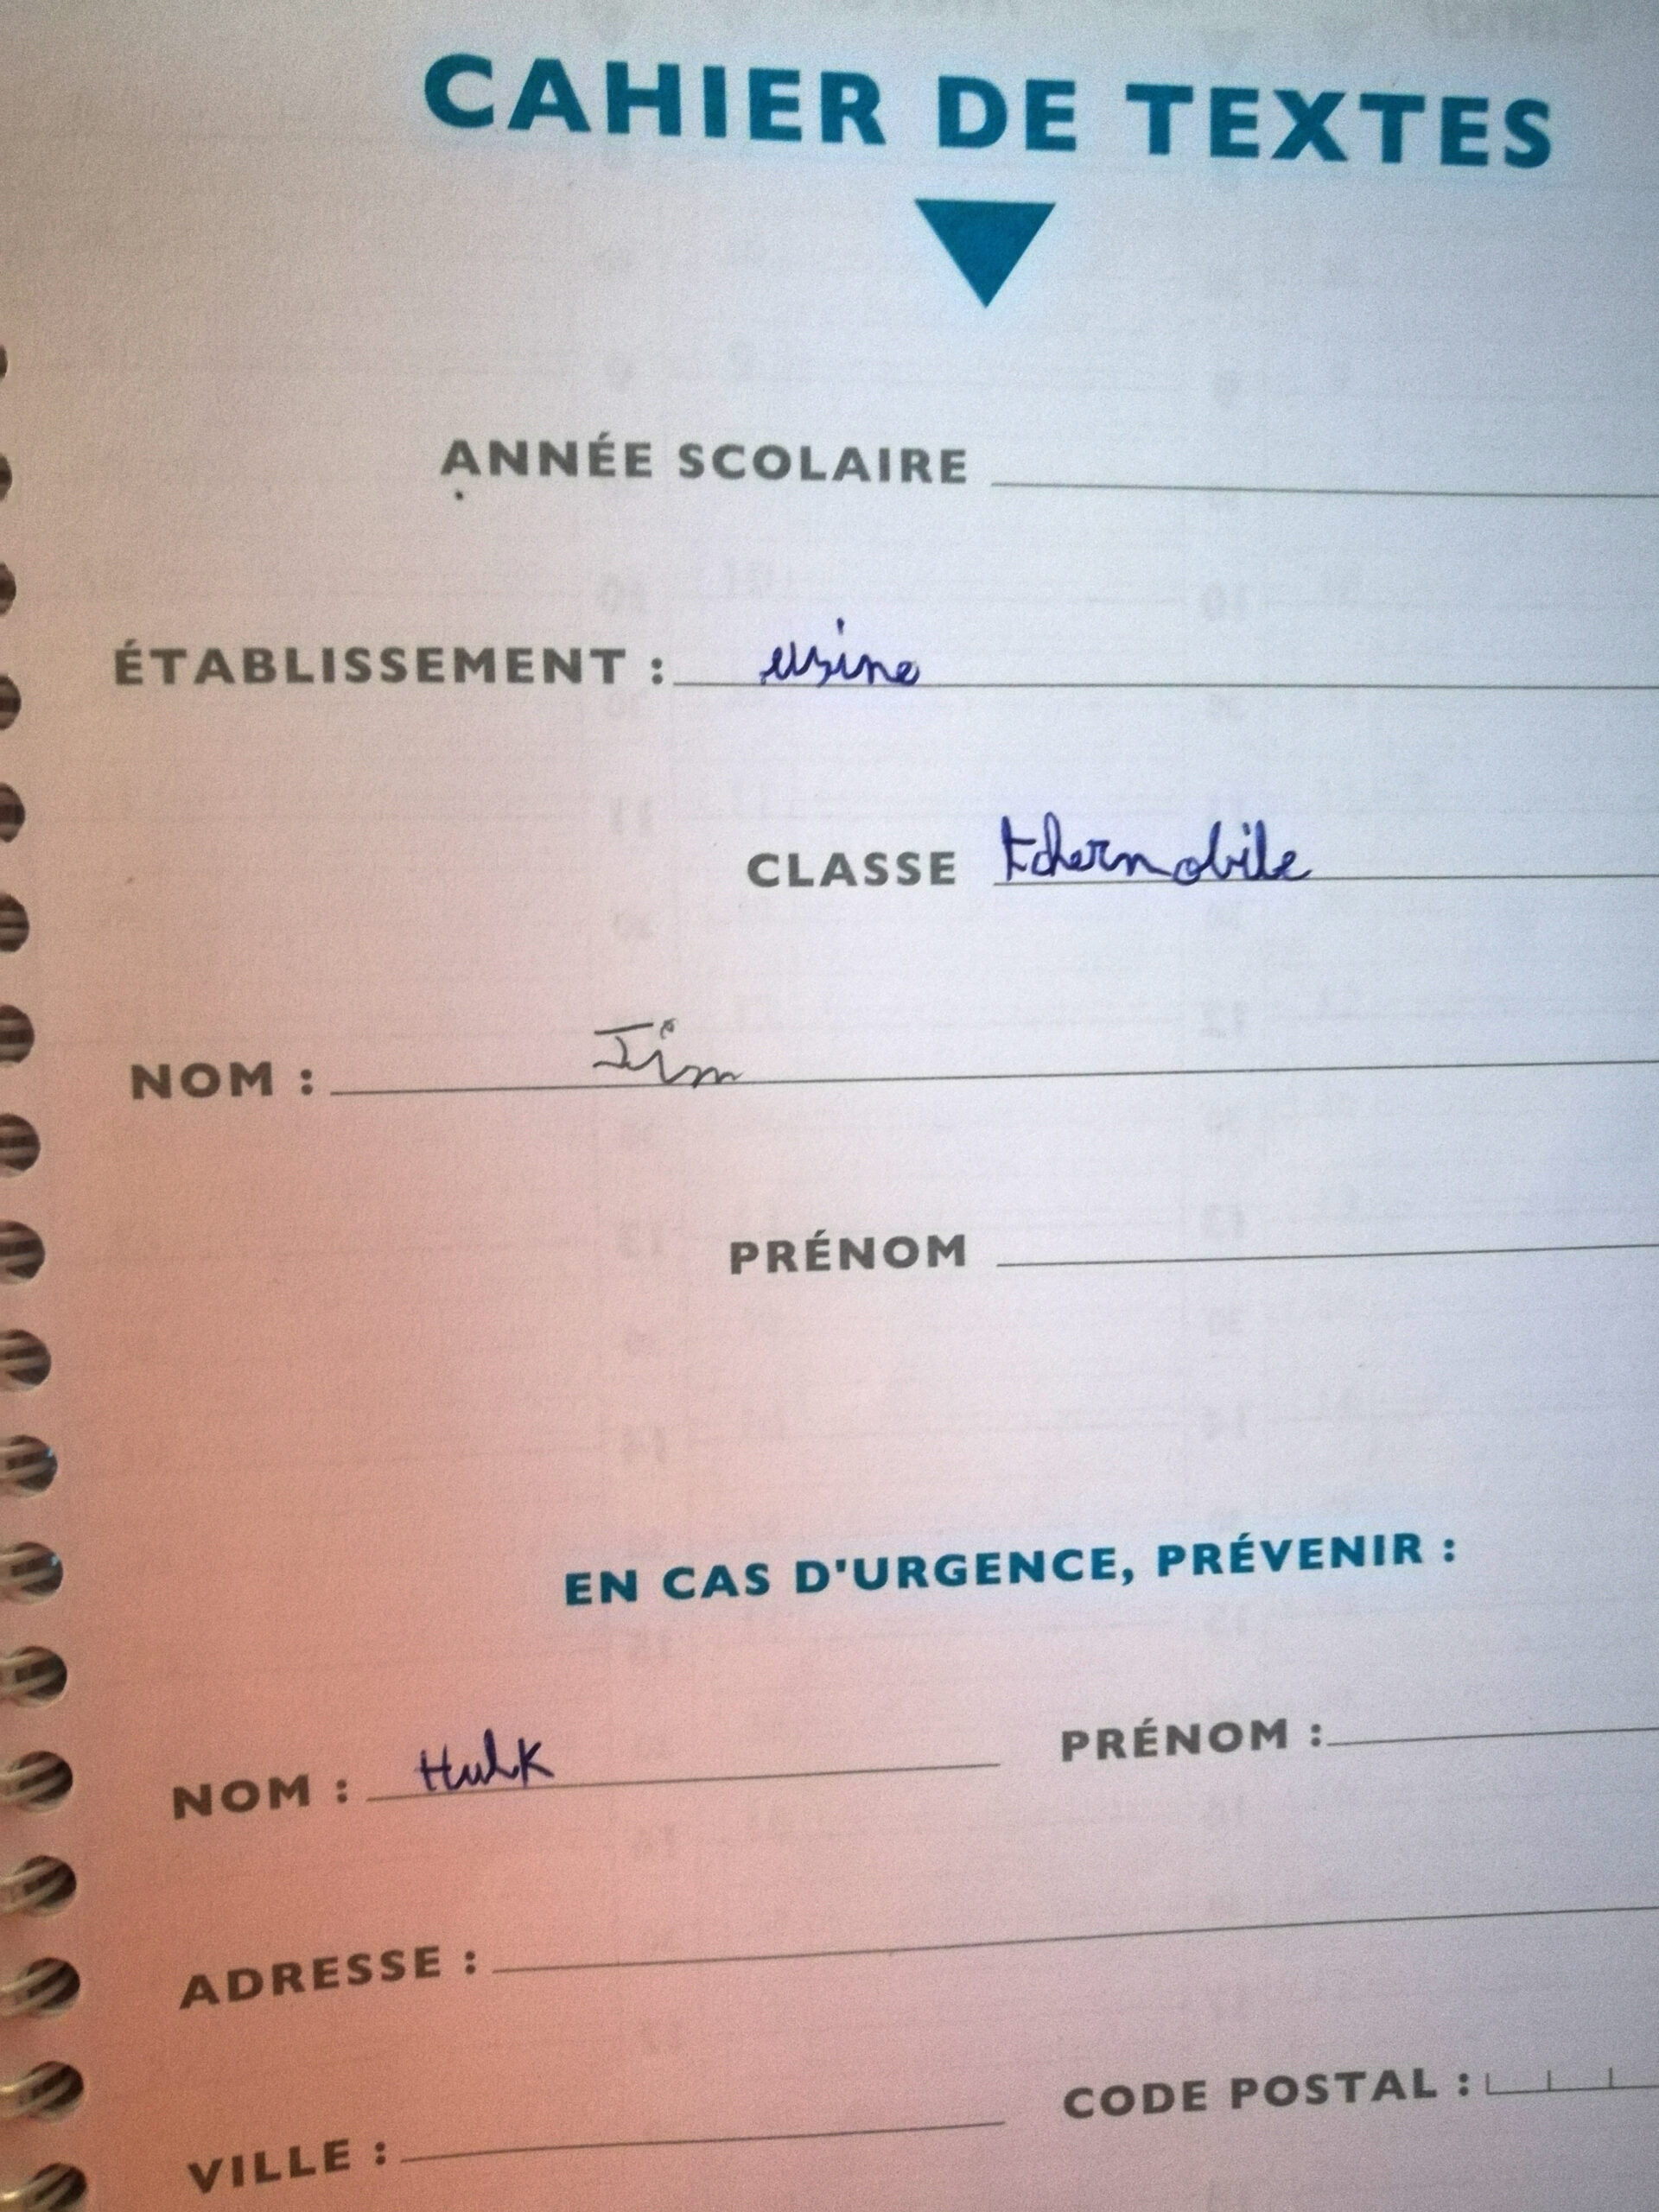 CAHIER DE TEXTES
ANNÉE SCOLAIRE
ÉTABLISSEMENT : usine
CLASSE tchernobile
NOM : Jim
PRÉNOM
EN CAS D'URGENCE, PRÉVENIR :
NOM : Hulk PRÉNOM :
ADRESSE :
CODE POSTAL :
VILLE :